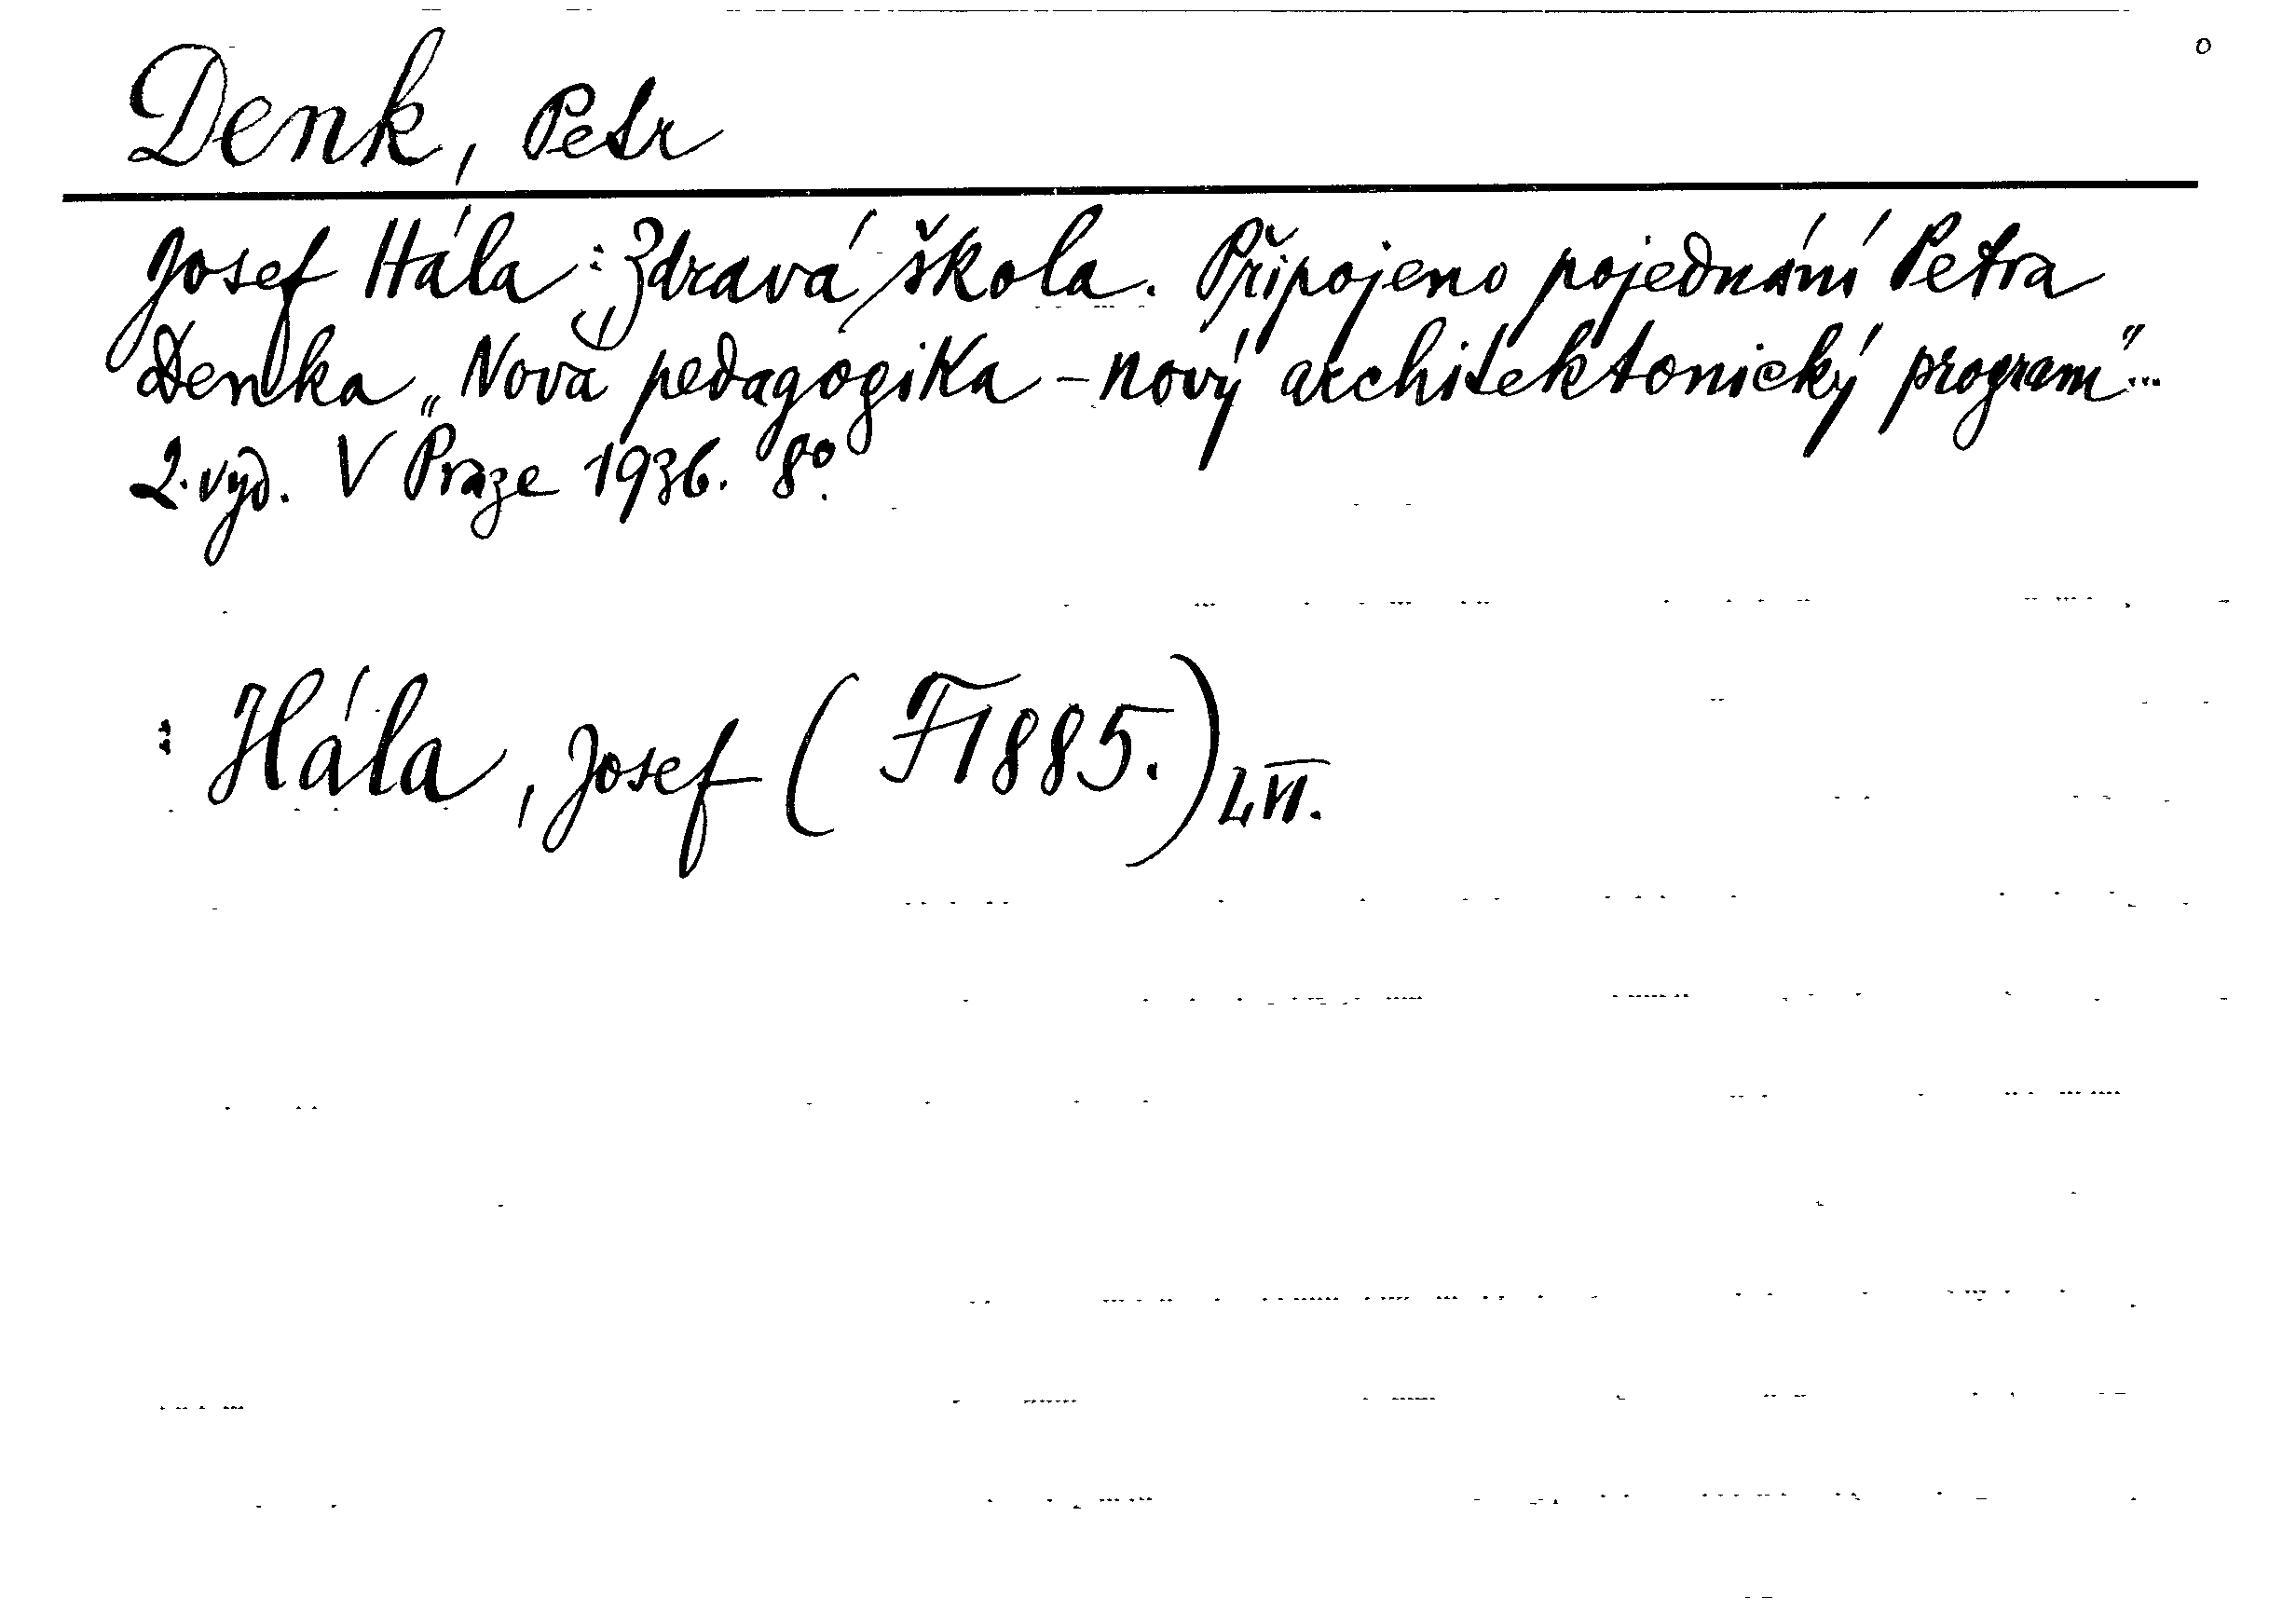 Denk, Petr
Josef Hála: Zdravá škola. Připojeno pojednání Petra
Denka „Nová pedagogika - nový architektonický program“...
2. vyd. V Praze 1936. 8°.
: Hála, Josef (F1885.)